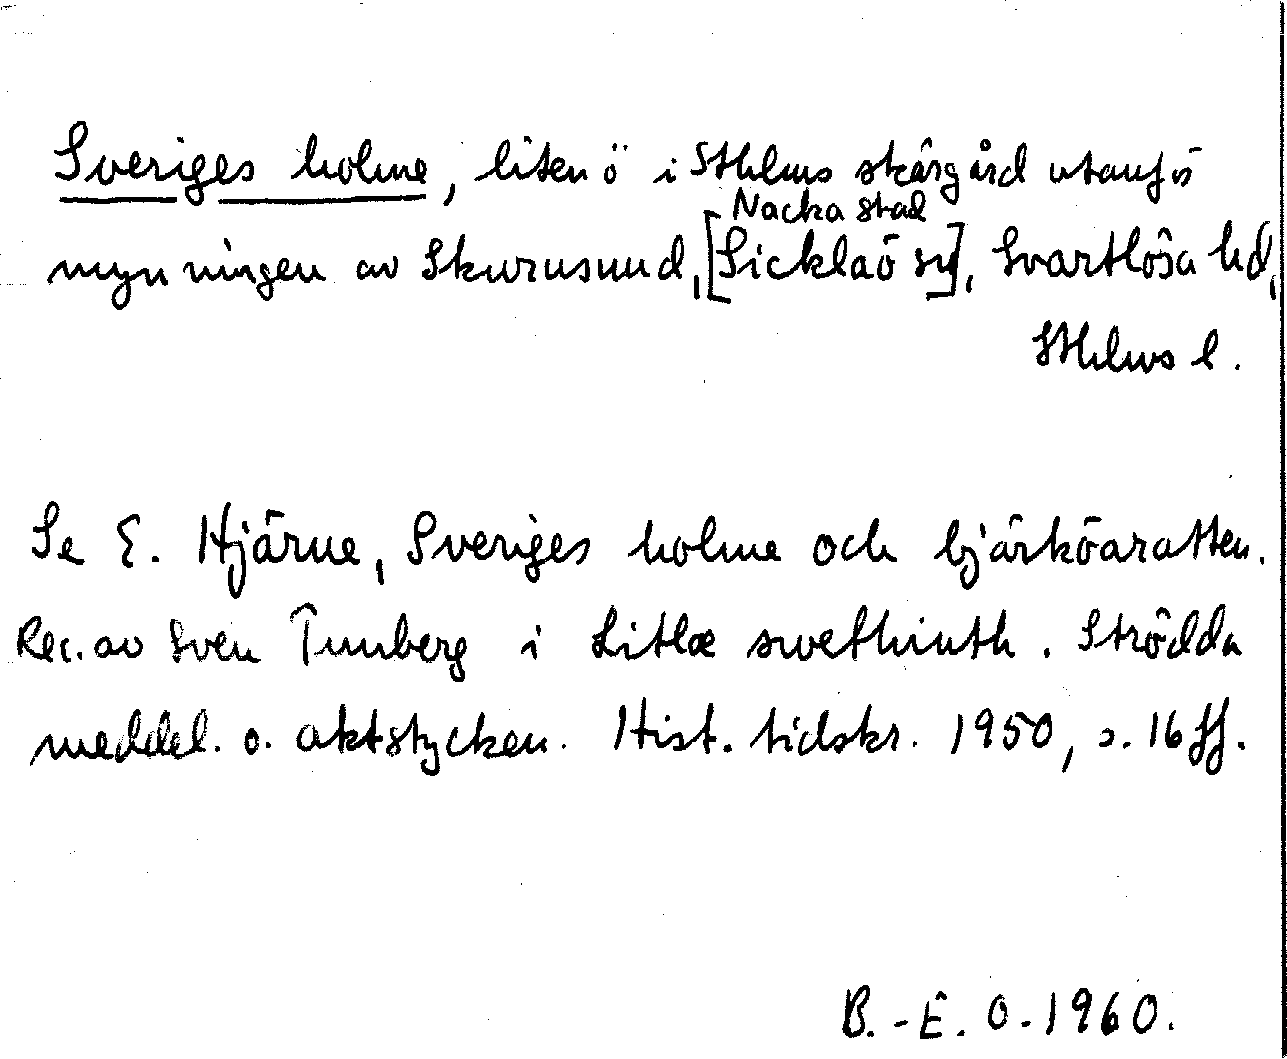 Sveriges holme, liten ö i Sthlms skärgård utanför
Nacka stad
mynningen av Skurusund, [Sicklaö sn], Svartlösa hd,
Sthlms l.
Se E. Hjärne, Sveriges holme och bjärköarätten.
Rec. av Sven Tunberg i Litlæ swethiuth. Strödda
meddel. o. aktstycken. Hist. tidskr. 1950, s. 16 ff.
B.-E. O. 1960.